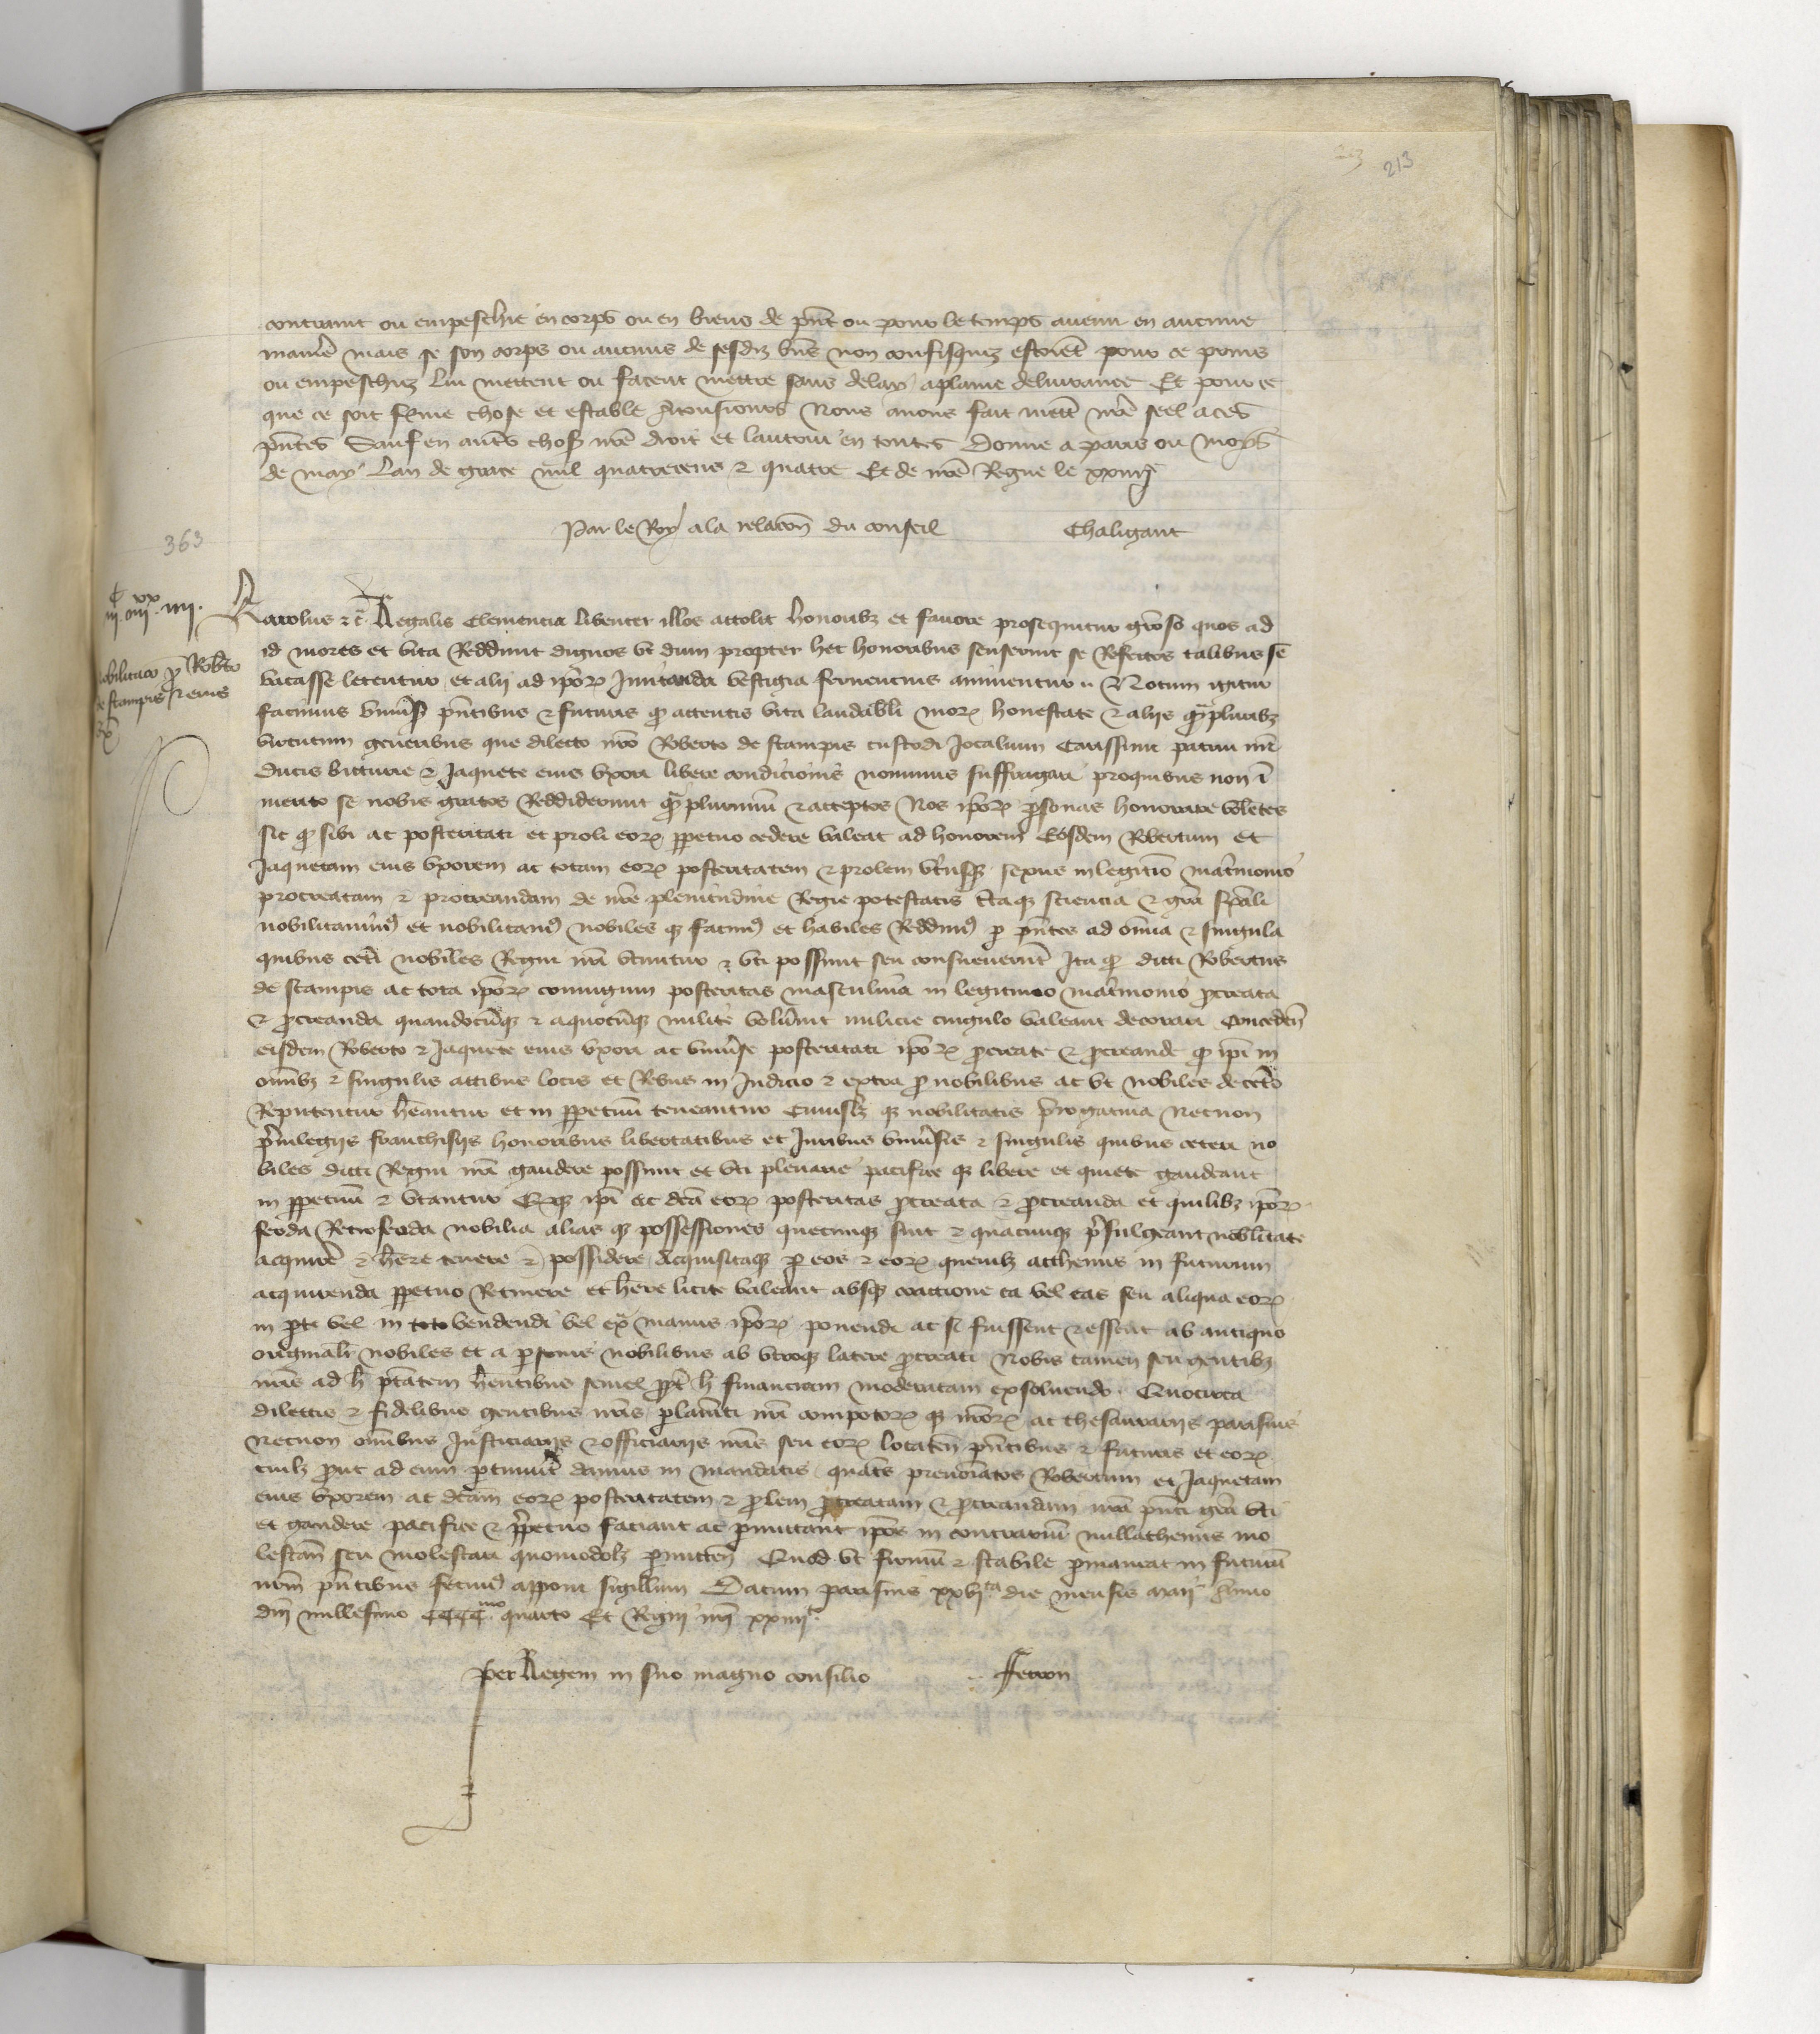 213
contraint ou empeschie en corps ou en biens de pñt ou pour le temps auenir en aucune
maniẽ mais se son corps ou aucuns de sesdiz biẽs non confisquez estoiẽt pour ce prins
ou empeschiez lui mettent ou facent mettre sans delay a plaine deliurance Et pour ce
que ce soit ferme chose et estable a tousiours Nous auons fait mett̃ nr̃e seel a ces
pñtes Sauf en aut̃s choses nr̃e droit et lautrui en toutes Donne a paris ou moys
de may Lan de grace mil quatrecens et quatre Et de nr̃e Regne le xxiiij
Par le Roy a la relacõn du conseil Chaligant
363
iij^c iiij^xx iiij.
Karolus etc̃ Regalis Clemencia libenter illos attolit honoribz et fauore prosequitur gr̃oso quos ad
nobilitacõ p Robt̃o
de stampis et eius
ux̃
id mores et vita Reddunt dignos vt dum propter hec honoribus senserint se Refectos talibus se
vacasse letentur et alij ad ip̃oꝝ Imitanda vestigia feruencius animentur Notum igitur
facimus vniũs pñtibus et futuris qꝫ attentis vita laudabili moꝝ honestate et alijs qũpluribz
virtutum generibus que dilecto nr̃o Roberto de stampis custodi Jocalium Carissimi patrui nr̃i
ducis bitturie et Jaquete eius vxori libere condicionis nouimus suffragari pro quibus non ĩ
merito se nobis gratos Reddiderunt qũplurimũ et acceptos Nos ip̃oꝝ p̃sonas honorare volẽtes
sic qꝫ sibi ac posteritati et proli eoꝝ pp̃etuo cedere valeat ad honorem Eosdem Robertum et
Jaquetam eius vxorem ac totam eoꝝ posteritatem et prolem vtriusqꝫ sexus in legitĩo mat̃monio
procreatam et procreandam de nr̃e plenitudine Regie potestatis c̃taqꝫ sciencia et gr̃a sp̃ali
nobilitauimꝰ et nobilitamꝰ nobiles qꝫ facimꝰ et habiles Reddimꝰ p pñtes ad om̃ia et singula
quibus cet̃i nobiles Regni nr̃i vtuntur et vti possunt seu consueuerũt Ita qꝫ dicti Robertus
de stampis ac tota ip̃oꝝ coniugum posteritas masculina in legitimo mat̃monio p̃creata
et p̃creanda quandocũqꝫ et a quocũqꝫ milite volũint milicie cingulo valeant decorari Conceden̄
eisdem Roberto et Jaquete eius vxori ac vniũse posteritati ip̃oꝝ p̃create et p̃creande qꝫ ip̃i in
om̃ibz et singulis actibus locis et Rebus in Judicio et extra p nobilibus ac vt nobiles de cet̃o
Reputentur hẽantur et in pp̃etuũ teneantur Cuiuslibz qꝫ nobilitatis p̃rogatiua Necnon
p̃iuilegijs franchisijs honoribus libertatibus et Juribus vniũsis et singulis quibus ceteri no
biles dicti Regni nr̃i gaudere possunt et vti plenarie pacifice qꝫ libere et quiete gaudeant
in pp̃etuũ et vtantur Et qꝫ ip̃i ac dc̃a eoꝝ posteritas p̃creata et p̃creanda et quilibz ip̃oꝝ
feoda Retrofeoda nobilia alias qꝫ possessiones quecunqꝫ sint et quacunqꝫ p̃fulgeant nobilitate
acquirẽ et hẽre tenere et possidere Acquisitaqꝫ p eos et eoꝝ quemlibz acthenus in futurum
acquirenda pp̃etuo Retinere et hẽre licite valeant absqꝫ coactione ea vel eas seu aliqua eoꝝ
in p̃te vel in toto vendendi vel ex̃ manus ip̃oꝝ ponendi ac si fuissent et essent ab antiquo
originali nobiles et a p̃sonis nobilibus ab vtroqꝫ latere p̃creati Nobis tamen seu gentibz
nr̃is ad h̃ p̃tatem hẽntibus semel p̃pt̃ h̃ financiam moderatam exsoluendo Quocirca
dilectis et fidelibus gentibus nr̃is p̃lam̃ti nr̃i compotoꝝ qꝫ nr̃oꝝ ac thesaurarijs parisius
Necnon om̃ibus Justiciarijs et officiarijs nr̃is seu eoꝝ locateñ pñtibus et futuris et eoꝝ
cuilibz p̃ut ad eum p̃tinũit damus in mandatis quat̃s prenoĩatos Robertum et Jaquetam
eius vxorem ac dc̃am eoꝝ posteritatem et p̃lem p̃creatam et p̃creandam nr̃a pñti gr̃a vti
et gaudere pacifice et pp̃etuo faciant ac p̃mittant ip̃os in contrariũ nullathenus mo
lestan̄ seu molestari quomodolibz p̃mitten̄ Quod vt firmũ et stabile p̃maneat in futurũ
nr̃m pñtibus fecimꝰ apponi sigillum Datum parisius xxvj^ta die mensis maij Anno
dñi millesimo CCCC^mo quarto Et Regni nr̃i xxiiij^to
Per Regem in suo magno consilio Ferron